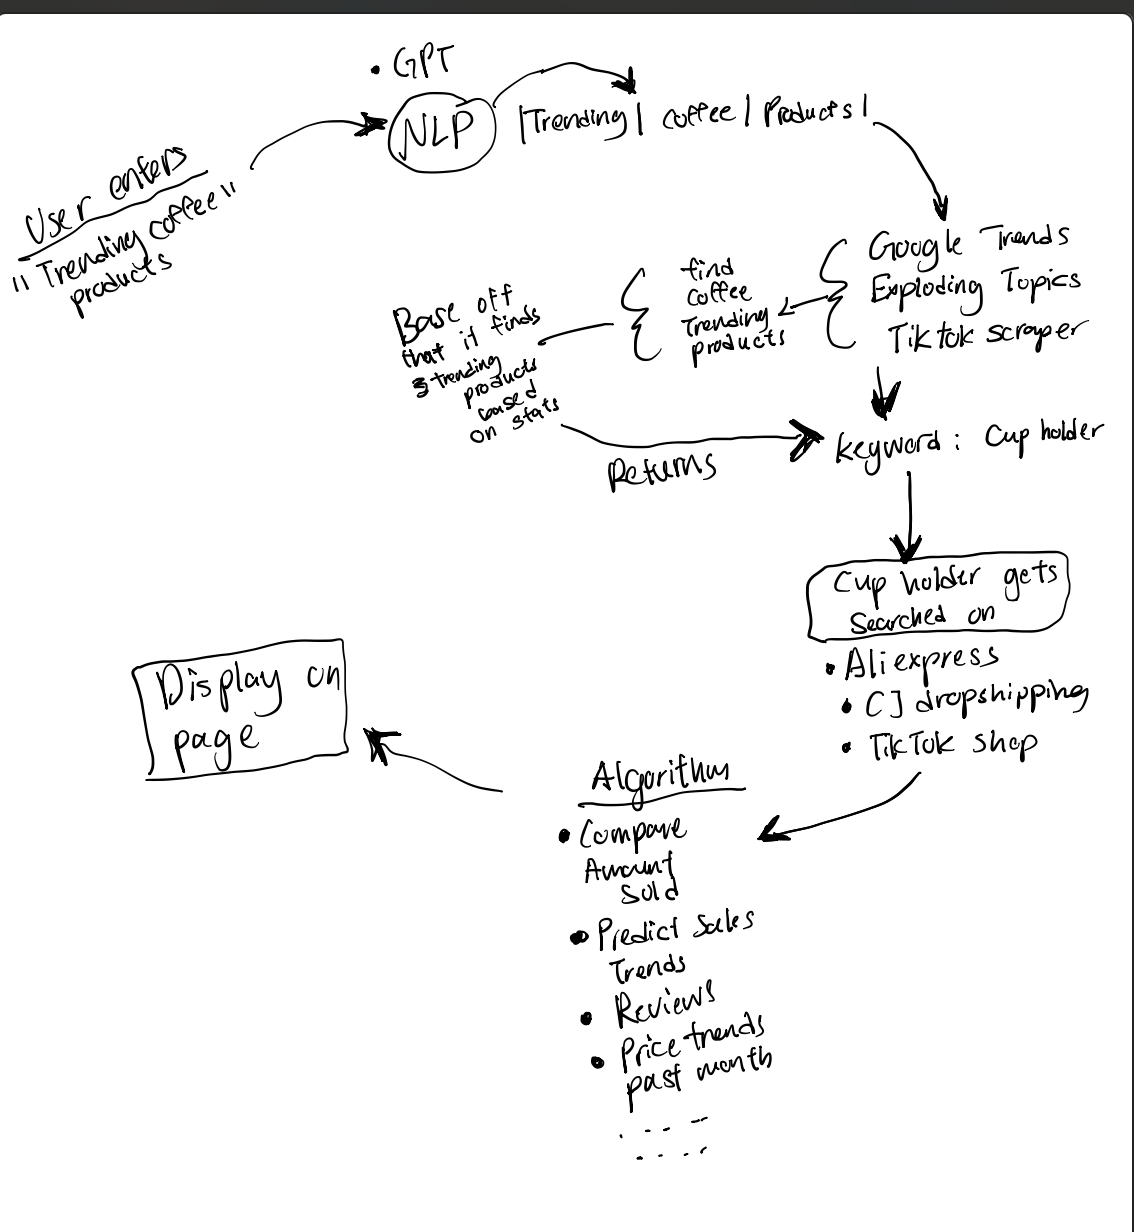 • GPT
NLP
|Trending| coffee | Products |
User enters
"Trending coffee"
products
Google Trends
Exploding Topics
Tiktok scraper
find
coffee
Trending
products
Base off
that it finds
trending
products
based
on stats
Returns
keyword: Cup holder
Cup holder gets
Searched on
• Aliexpress
• CJ dropshipping
• TikTok shop
Algorithm
• Compare
Amount
Sold
• Predict Sales
Trends
• Reviews
• Price trends
past month
Display on
page